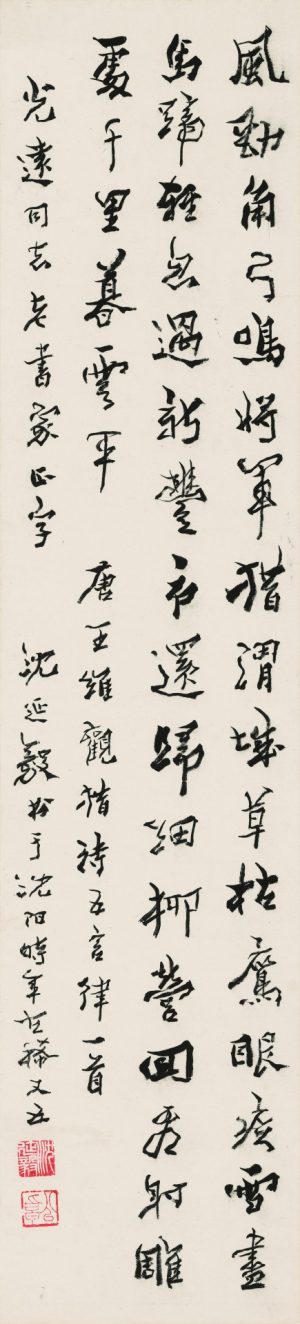 風勁角弓鳴將軍猎渭城草枯鷹眼疾雪盡
馬蹄輕忽過新豐市還歸細柳營回看射雕
處千里暮雲平 唐王維觀猎詩五言律一首
光遠同志老書家正字 沈延毅于沈阳時年秩又五